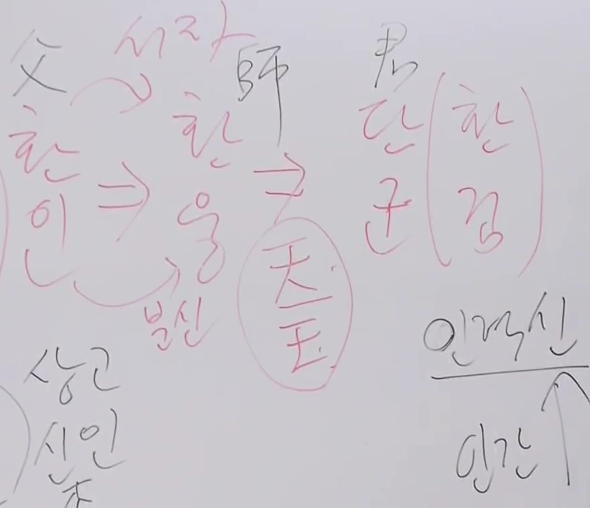 서자
父 師 君
환인 ⇒ 환웅 ⇒ 단군 (환검)
분신
天王
상고
신인
인격신
인간